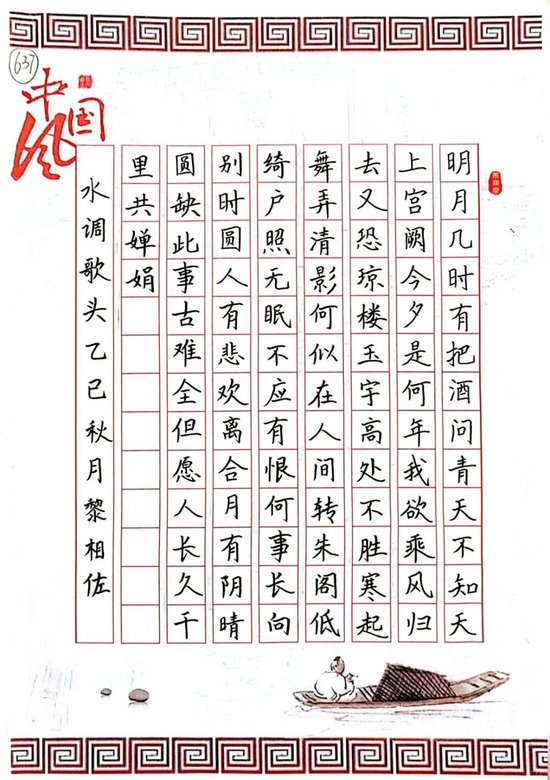 637
中国风
明月几时有把酒问青天不知天
上宫阙今夕是何年我欲乘风归
去又恐琼楼玉宇高处不胜寒起
舞弄清影何似在人间转朱阁低
绮户照无眠不应有恨何事长向
别时圆人有悲欢离合月有阴晴
圆缺此事古难全但愿人长久千
里共婵娟
水调歌头乙巳秋月黎相佐